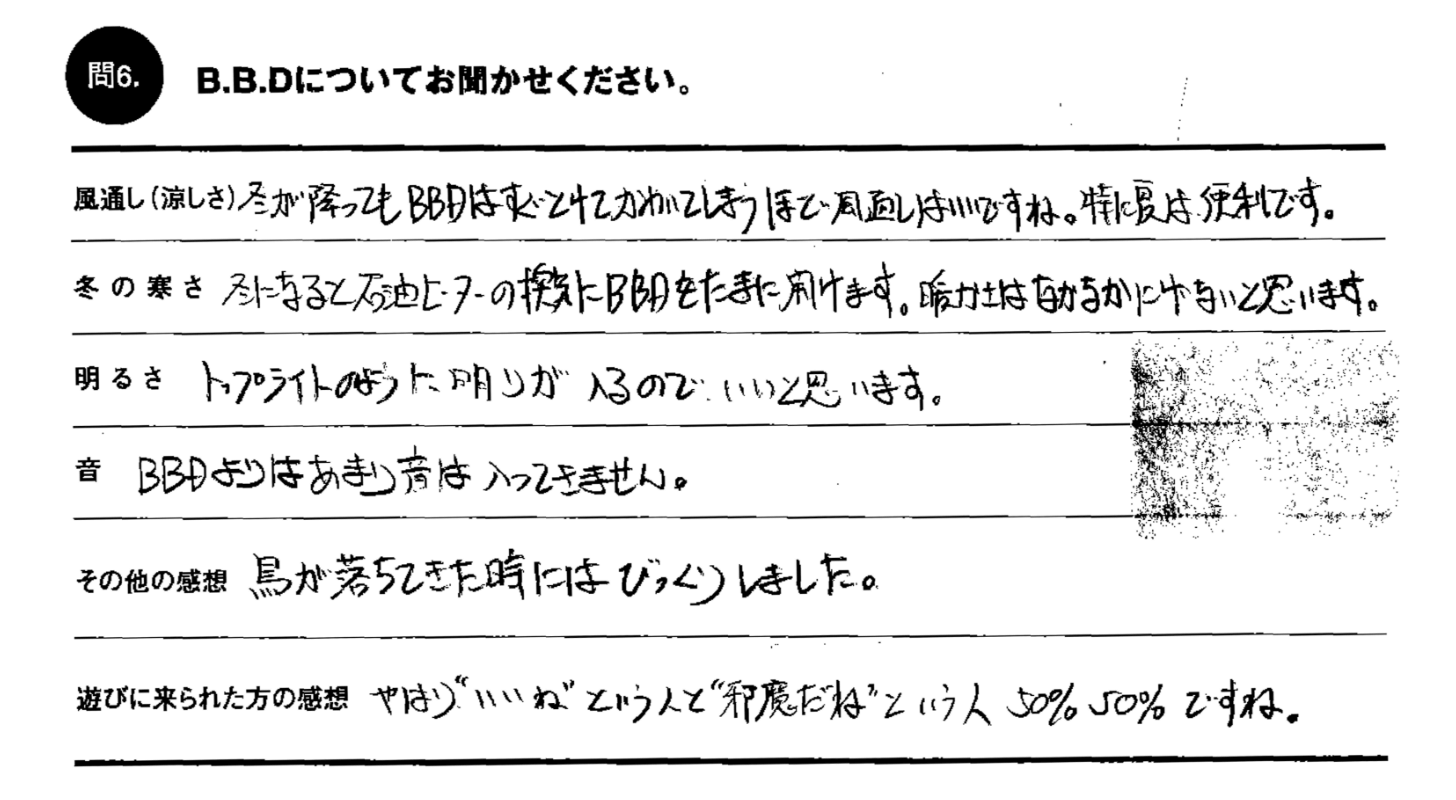 問6. B.B.Dについてお聞かせください。
風通し(涼しさ) 冬が降ってもBBDはすぐとけてかわいてしまうほど風通しはいいですね。特に夏は便利です。
冬の寒さ 冬になると石油ヒーターの換気にBBDをたまに開けます。 はなかなか ないと思います。
明るさ トップライトのように明りが入るのでいいと思います。
音 BBDよりはあまり音は入ってきません。
その他の感想 鳥が落ちてきた時にはびっくりしました。
遊びに来られた方の感想 やはり“いいね”という人と“邪魔だね”という人 50% 50% ですね。